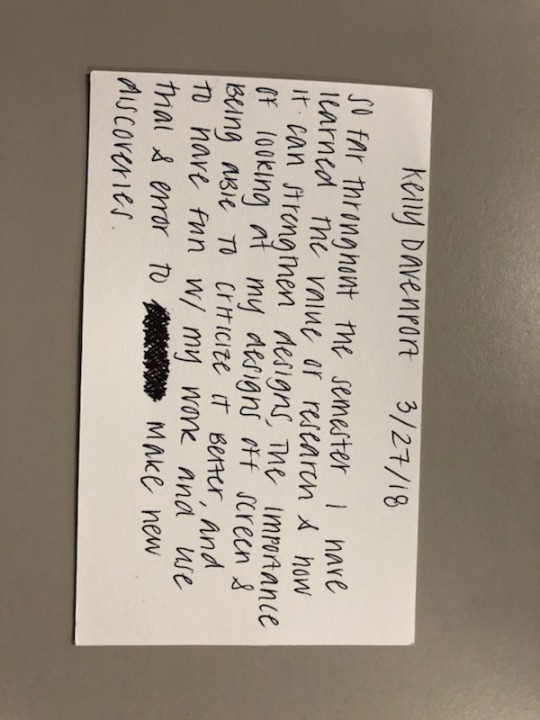 Kelly Davenport 3/27/18
So far throughout the semester I have
learned the value of research & how
it can strengthen designs, the importance
of looking at my designs off screen &
being able to criticize it better, and
to have fun w/ my work and use
trial & error to make new
discoveries.